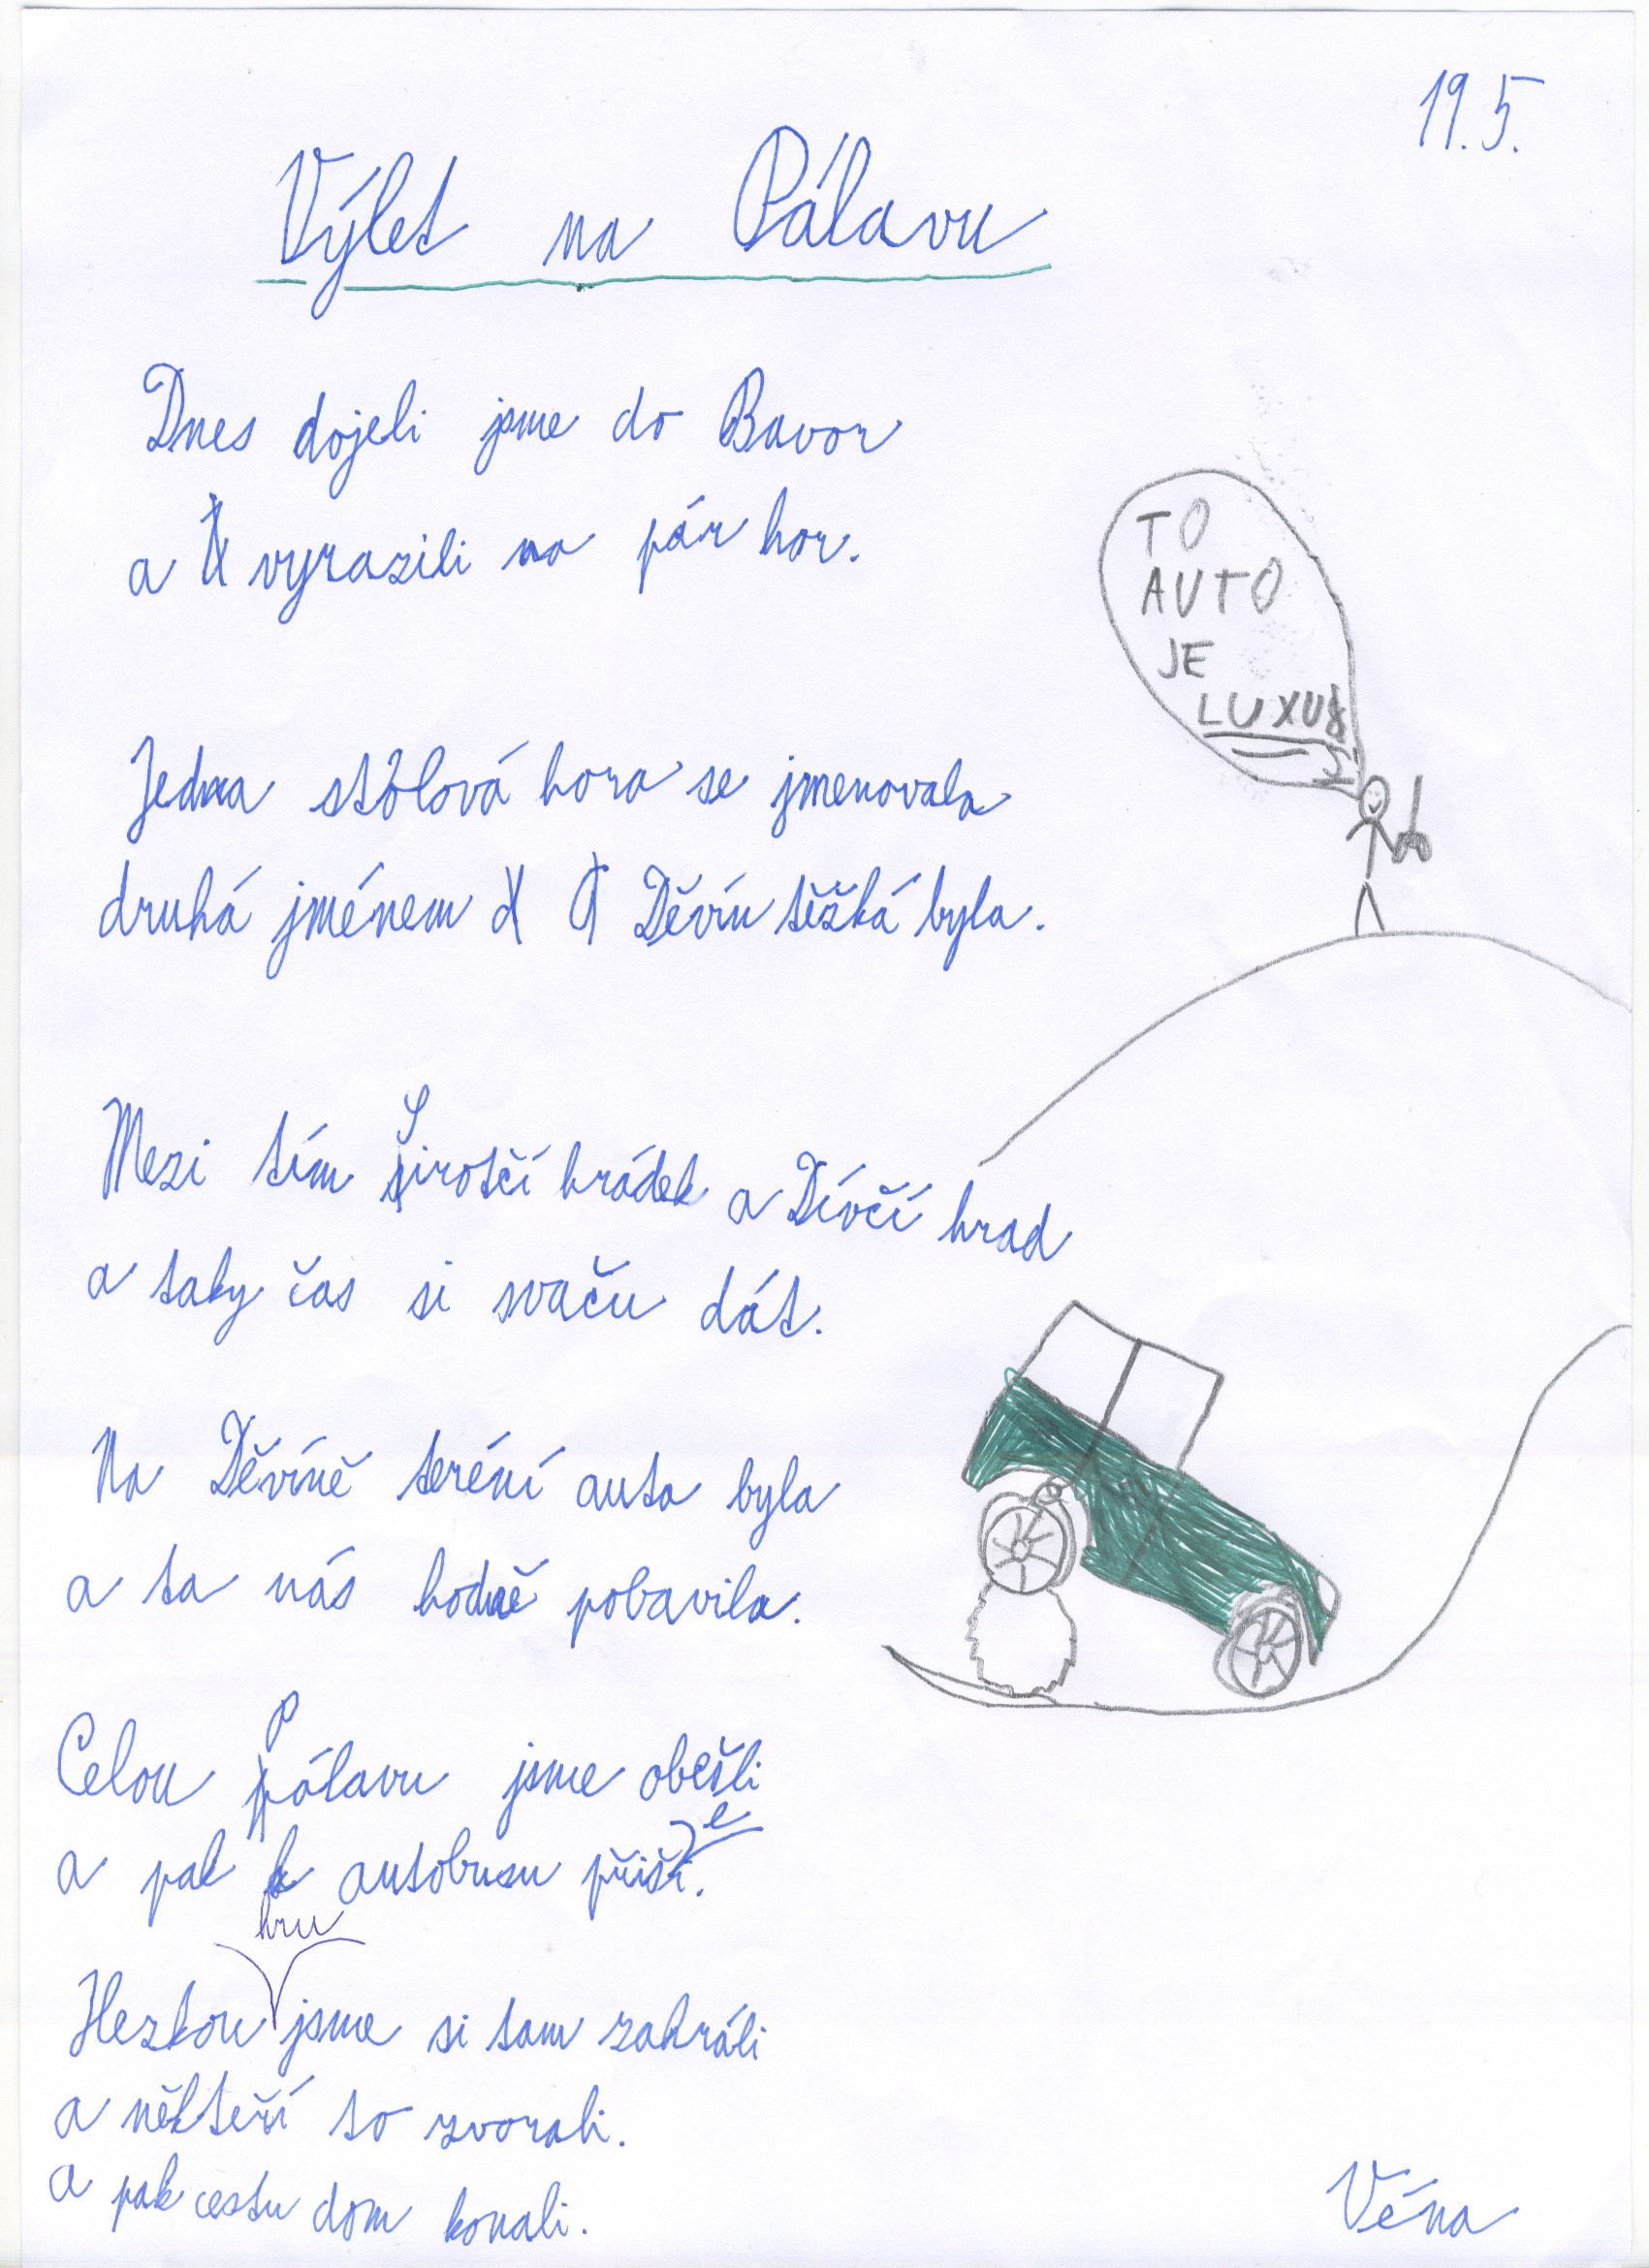 19.5.
Výlet na Pálavu
Dnes dojeli jsme do Bavor
a vyrazili na pár hor.
TO
AUTO
JE
LUXUS
Jedna stolová hora se jmenovala
druhá jménem Děvín těžká byla.
Mezi tím Sirotčí hrádek a Dívčí hrad
a taky čas si svaču dát.
Na Děvíně teréní auta byla
a ta nás hodně pobavila.
Celou Pálavu jsme obešli
a pak k autobusu přišli.
Hezkou hru jsme si tam zahráli
a někteří to zvorali.
a pak cestu dom konali.
Véna